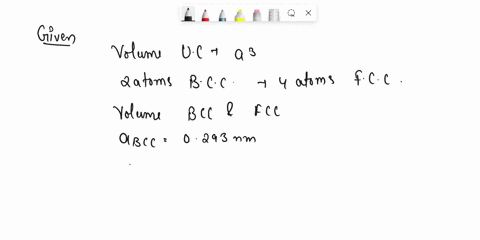 Given
Volume U.C → a3
2 atoms B.C.C. → 4 atoms f.C.C.
Volume BCC & FCC
aBCC = 0.293 nm